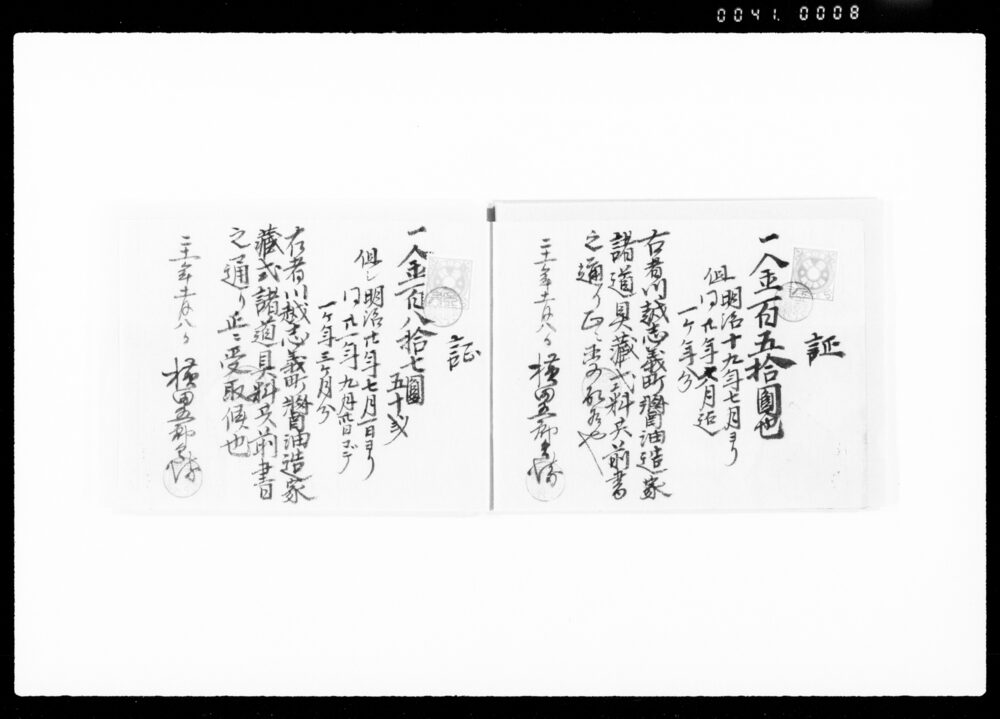 0041. 0008
証
一金百五拾圓也
但明治十九年七月ヨリ
同廿年六月迄
一ケ年分
右者川越志義町醤油造家
諸道具蔵式料共前書
之通り正ニ受取候也
二十一年十一月八日
横田五郎兵衛
証
一金百八拾七圓
五十銭
但シ明治廿年七月一日ヨリ
同廿一年九月卅日マデ
一ケ年三ケ月分
右者川越志義町醤油造家
蔵式諸道具料共前書
之通り正ニ受取候也
二十一年十一月八日
横田五郎兵衛